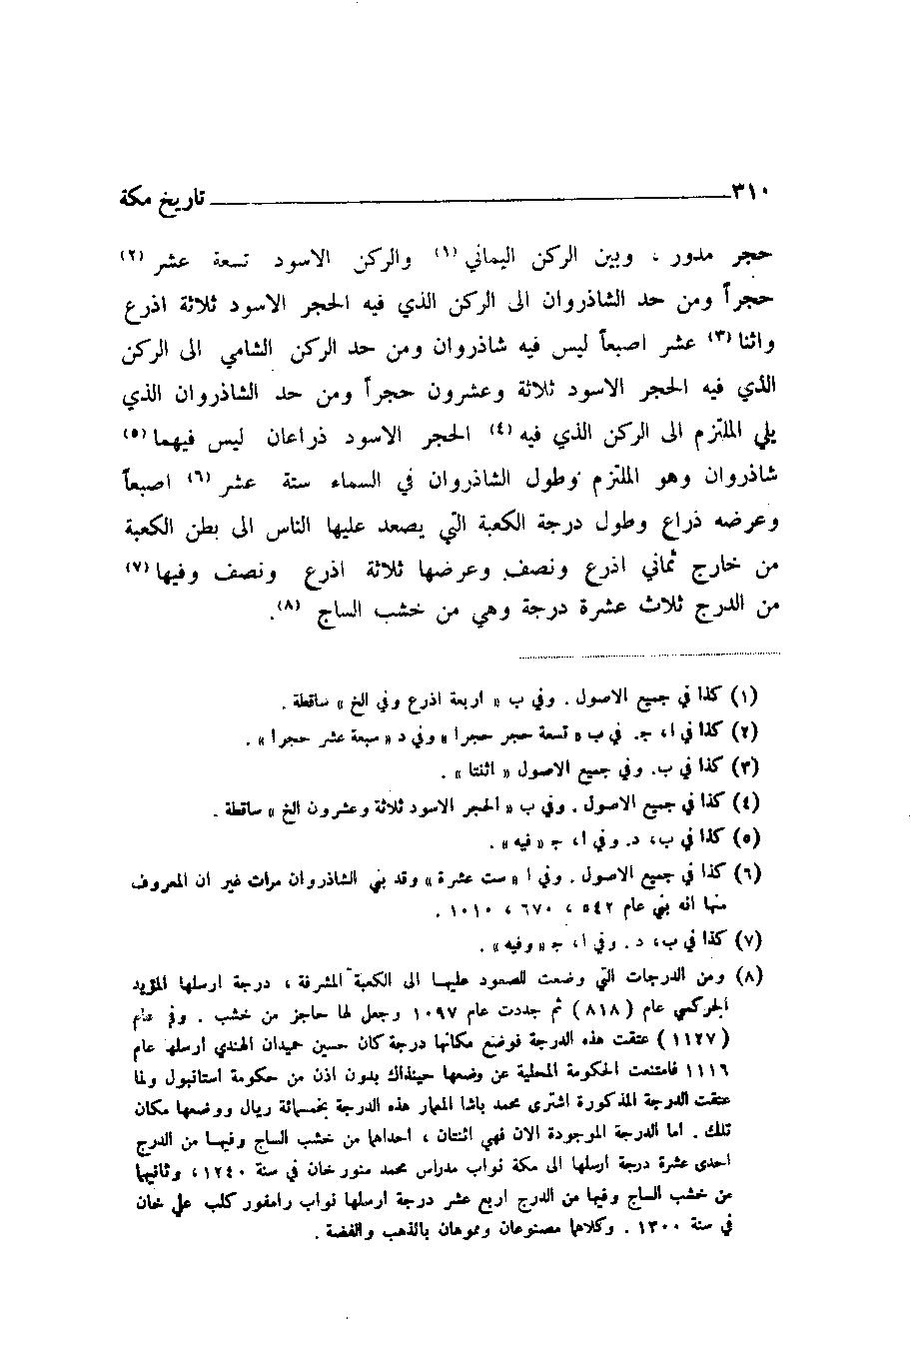 ٣١٠ تاريخ مكة
حجر مدور ، وبين الركن اليماني (١) والركن الاسود تسعة عشر (٢)
حجراً ومن حد الشاذروان الى الركن الذي فيه الحجر الاسود ثلاثة اذرع
واثنا (٣) عشر اصبعاً ليس فيه شاذروان ومن حد الركن الشامي الى الركن
الذي فيه الحجر الاسود ثلاثة وعشرون حجراً ومن حد الشاذروان الذي
يلي الملتزم الى الركن الذي فيه (٤) الحجر الاسود ذراعان ليس فيهما (٥)
شاذروان وهو الملتزم وطول الشاذروان في السماء ستة عشر (٦) اصبعاً
وعرضه ذراع وطول درجة الكعبة التي يصعد عليها الناس الى بطن الكعبة
من خارج ثماني اذرع ونصف وعرضها ثلاثة اذرع ونصف وفيها (٧)
من الدرج ثلاث عشرة درجة وهي من خشب الساج (٨).
(١) كذا في جميع الاصول . وفي ب « اربعة اذرع وفي الخ » ساقطة .
(٢) كذا في ا، ج. في ب « تسعة حجر حجرا » وفي د « سبعة عشر حجرا » .
(٣) كذا في ب. وفي جميع الاصول « اثنتا » .
(٤) كذا في جميع الاصول . وفي ب « الحجر الاسود ثلاثة وعشرون الخ » ساقطة .
(٥) كذا في ب، د. وفي ا، ج « فيه » .
(٦) كذا في جميع الاصول . وفي ا « ست عشرة » وقد بني الشاذروان مرات غير ان المعروف
منها انه بني عام ٥٤٢ ، ٦٧٠ ، ١٠١٠ .
(٧) كذا في ب، د . وفي ا، ج « وفيه » .
(٨) ومن الدرجات التي وضعت للصعود عليها الى الكعبة المشرفة ، درجة ارسلها المؤيد
الجركسي عام ( ٨١٨ ) ثم جددت عام ١٠٩٧ وجعل لها حاجز من خشب . وفي عام
( ١١٢٧ ) عتقت هذه الدرجة فوضع مكانها درجة كان حسين حميدان الهندي ارسلها عام
١١١٦ فامتنعت الحكومة المحلية عن وضعها حينذاك بدون اذن من حكومة استانبول ولما
عتقت الدرجة المذكورة اشترى محمد باشا المعمار هذه الدرجة بخمسمائة ريال ووضعها مكان
تلك . اما الدرجة الموجودة الان فهي اثنتان ، احداهما من خشب الساج وفيها من الدرج
احدى عشرة درجة ارسلها الى مكة نواب مدراس محمد منور خان في سنة ١٢٤٠ ، وثانيهما
من خشب الساج وفيها من الدرج اربع عشر درجة ارسلها نواب رامفور كلب علي خان
في سنة ١٣٠٠ . وكلاهما مصنوعان ومموهان بالذهب والفضة .